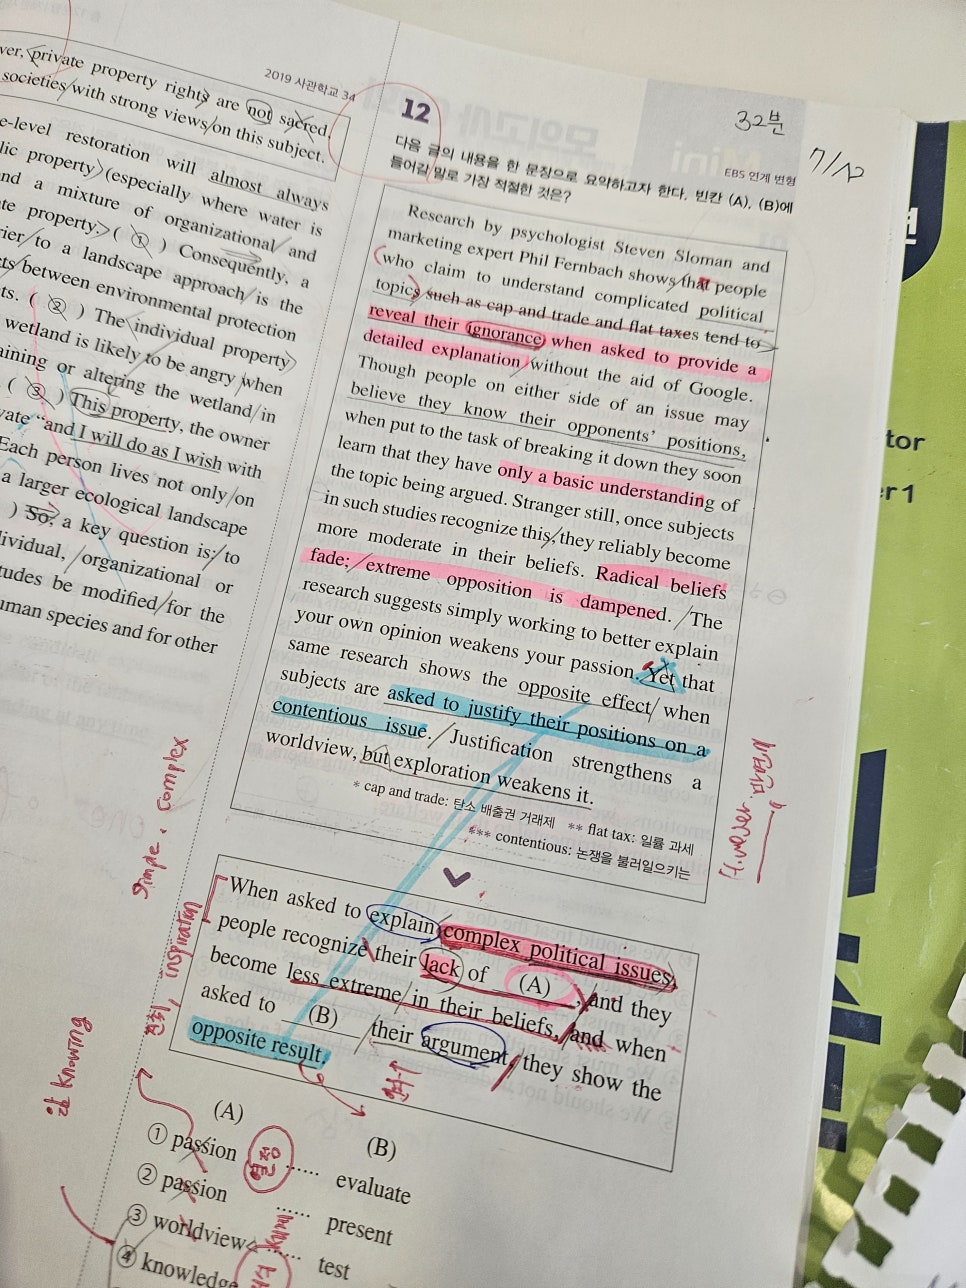 2019 사관학교 34
ver, private property rights are not sacred,
societies with strong views on this subject.
e-level restoration will almost always
lic property (especially where water is
nd a mixture of organizational and
te property. ( ① ) Consequently, a
rier to a landscape approach is the
ts between environmental protection
ts. ( ② ) The individual property
wetland is likely to be angry when
aining or altering the wetland in
( ③ ) This property, the owner
vate “and I will do as I wish with
Each person lives not only on
a larger ecological landscape
) So, a key question is: to
dividual, organizational or
tudes be modified for the
uman species and for other
12
32분
7/12
EBS 연계 변형
다음 글의 내용을 한 문장으로 요약하고자 한다. 빈칸 (A), (B)에
들어갈 말로 가장 적절한 것은?
Research by psychologist Steven Sloman and
marketing expert Phil Fernbach shows that people
who claim to understand complicated political
topics such as cap and trade and flat taxes tend to
reveal their ignorance when asked to provide a
detailed explanation without the aid of Google.
Though people on either side of an issue may
believe they know their opponents’ positions,
when put to the task of breaking it down they soon
learn that they have only a basic understanding of
the topic being argued. Stranger still, once subjects
in such studies recognize this, they reliably become
more moderate in their beliefs. Radical beliefs
fade; extreme opposition is dampened. The
research suggests simply working to better explain
your own opinion weakens your passion. Yet that
same research shows the opposite effect when
subjects are asked to justify their positions on a
contentious issue. Justification strengthens a
worldview, but exploration weakens it.
* cap and trade: 탄소 배출권 거래제 ** flat tax: 일률 과세
*** contentious: 논쟁을 불러일으키는
However
simple · complex
inspiration
knowing
When asked to explain complex political issues,
people recognize their lack of (A) , and they
become less extreme in their beliefs, and when
asked to (B) their argument, they show the
opposite result.
(A) (B)
① passion …… evaluate
열정
② passion …… present
③ worldview …… test
④ knowledge
tor
r 1